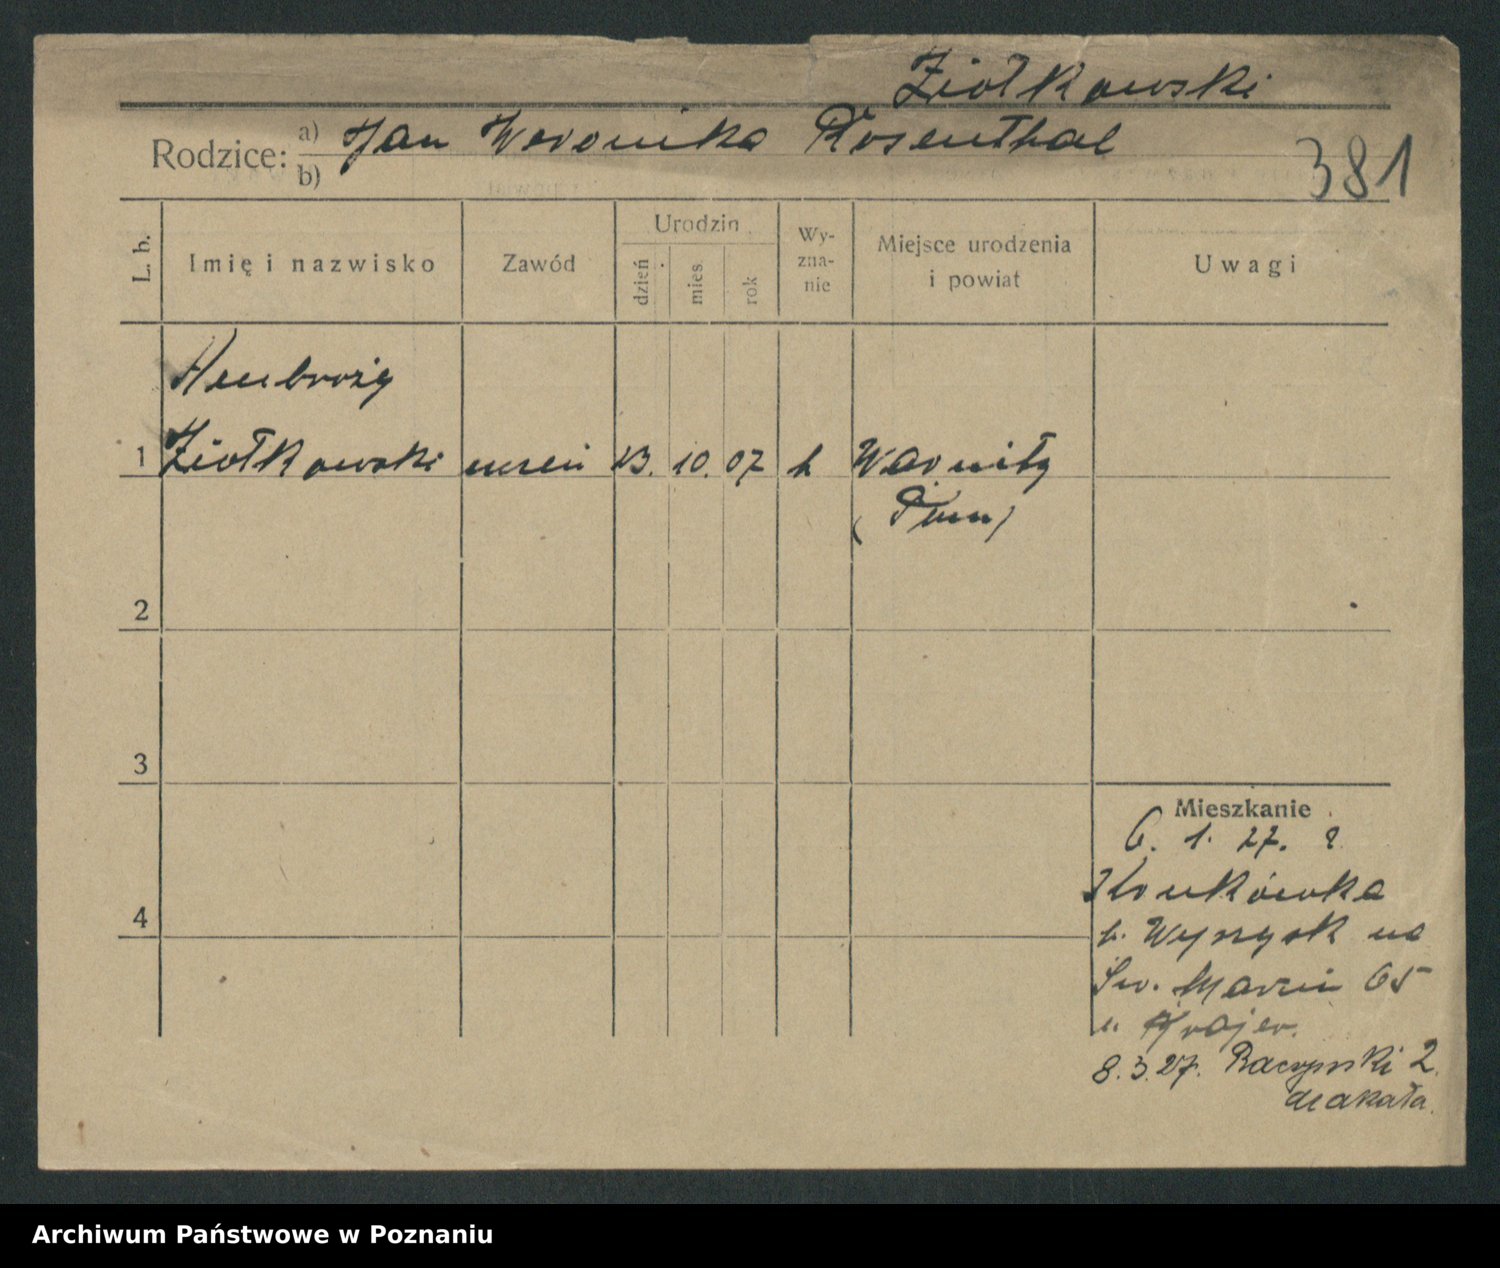 Ziołkowski
Rodzice: a) Jan Weronika Rosenthal
b)
381
L. b.
Imię i nazwisko
Zawód
Urodzin
dzień
mies.
rok
Wy-
zna-
nie
Miejsce urodzenia
i powiat
Uwagi
Ambroży
1 Ziołkowski uczeń 23. 10. 07 k Warmiły
2
3
4
Mieszkanie
6. 1. 27. 2
b. Wyrzysk na
Św. Marcin 65
u Krajew.
8.3.27. Raczyński 2.
Archiwum Państwowe w Poznaniu